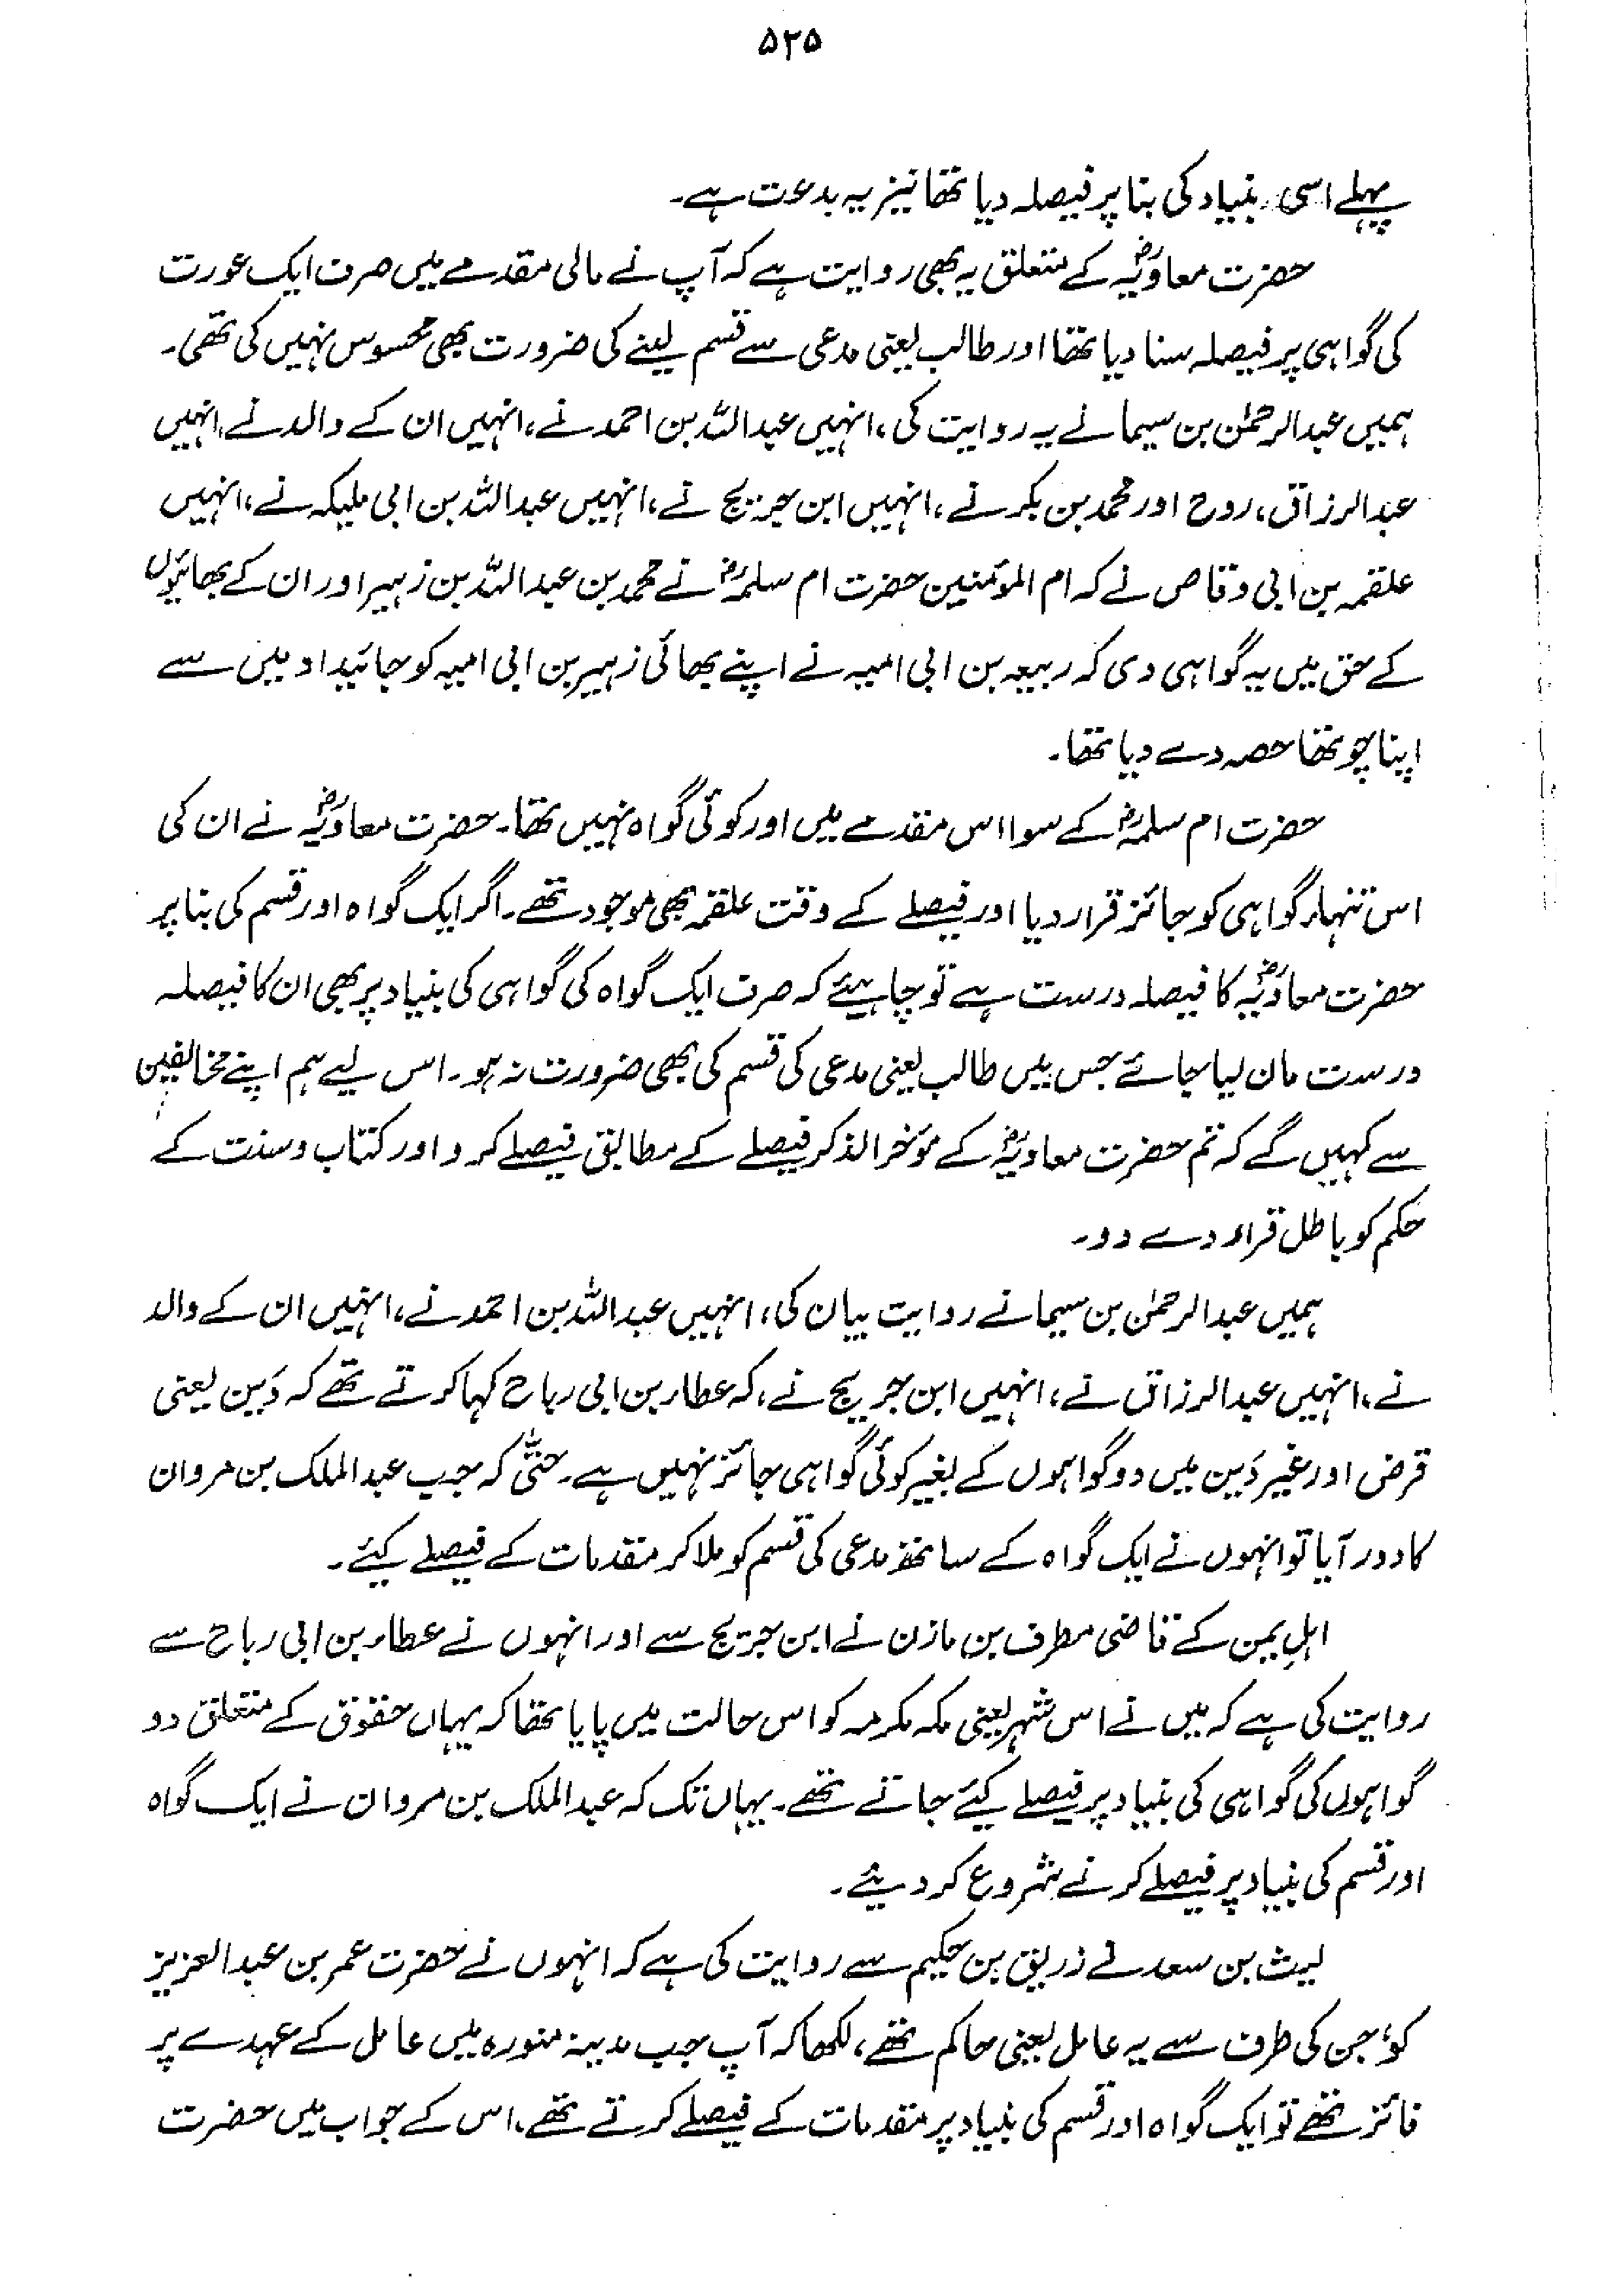 ۵۲۵
پہلے اسی بنیاد کی بنا پر فیصلہ دیا تھا نیز یہ بدعت ہے۔
حضرت معاویہؓ کے متعلق یہ بھی روایت ہے کہ آپ نے مالی مقدمے میں صرف ایک عورت
کی گواہی پر فیصلہ سنا دیا تھا اور طالب یعنی مدعی سے قسم لینے کی ضرورت بھی محسوس نہیں کی تھی۔
ہمیں عبدالرحمٰن بن سیما نے یہ روایت کی، انہیں عبداللہ بن احمد نے، انہیں ان کے والد نے انہیں
عبدالرزاق، روح اور محمد بن بکر نے، انہیں ابن جریج نے، انہیں عبداللہ بن ابی ملیکہ نے، انہیں
علقمہ بن ابی وقاص نے کہ ام المؤمنین حضرت ام سلمہؓ نے محمد بن عبداللہ بن زہیر اور ان کے بھائیوں
کے حق میں یہ گواہی دی کہ ربیعہ بن ابی امیہ نے اپنے بھائی زہیر بن ابی امیہ کو جائیداد میں سے
اپنا چوتھا حصہ دے دیا تھا۔
حضرت ام سلمہؓ کے سوا اس مقدمے میں اور کوئی گواہ نہیں تھا۔ حضرت معاویہؓ نے ان کی
اس تنہا گواہی کو جائز قرار دیا اور فیصلے کے وقت علقمہ بھی موجود تھے۔ اگر ایک گواہ اور قسم کی بنا پر
حضرت معاویہؓ کا فیصلہ درست ہے تو چاہیئے کہ صرف ایک گواہ کی گواہی کی بنیاد پر بھی ان کا فیصلہ
درست مان لیا جائے جس میں طالب یعنی مدعی کی قسم کی بھی ضرورت نہ ہو۔ اس لیے ہم اپنے مخالفین
سے کہیں گے کہ تم حضرت معاویہؓ کے مؤخر الذکر فیصلے کے مطابق فیصلے کرو اور کتاب و سنت کے
حکم کو باطل قرار دے دو۔
ہمیں عبدالرحمٰن بن سیما نے روایت بیان کی، انہیں عبداللہ بن احمد نے، انہیں ان کے والد
نے، انہیں عبدالرزاق نے، انہیں ابن جریج نے، کہ عطار بن ابی رباح کہا کرتے تھے کہ دَین یعنی
قرض اور غیر دَین میں دو گواہوں کے بغیر کوئی گواہی جائز نہیں ہے۔ حتیٰ کہ جب عبدالملک بن مروان
کا دور آیا تو انہوں نے ایک گواہ کے ساتھ مدعی کی قسم کو ملا کر مقدمات کے فیصلے کیئے۔
اہلِ یمن کے قاضی مطرف بن مازن نے ابن جریج سے اور انہوں نے عطار بن ابی رباح سے
روایت کی ہے کہ میں نے اس شہر یعنی مکہ مکرمہ کو اس حالت میں پایا تھا کہ یہاں حقوق کے متعلق دو
گواہوں کی گواہی کی بنیاد پر فیصلے کیئے جاتے تھے۔ یہاں تک کہ عبدالملک بن مروان نے ایک گواہ
اور قسم کی بنیاد پر فیصلے کرنے شروع کر دیئے۔
لیث بن سعد نے زریق بن حکیم سے روایت کی ہے کہ انہوں نے حضرت عمر بن عبدالعزیز
کو، جن کی طرف سے یہ عامل یعنی حاکم تھے، لکھا کہ آپ جب مدینہ منورہ میں عامل کے عہدے پر
فائز تھے تو ایک گواہ اور قسم کی بنیاد پر مقدمات کے فیصلے کرتے تھے، اس کے جواب میں حضرت